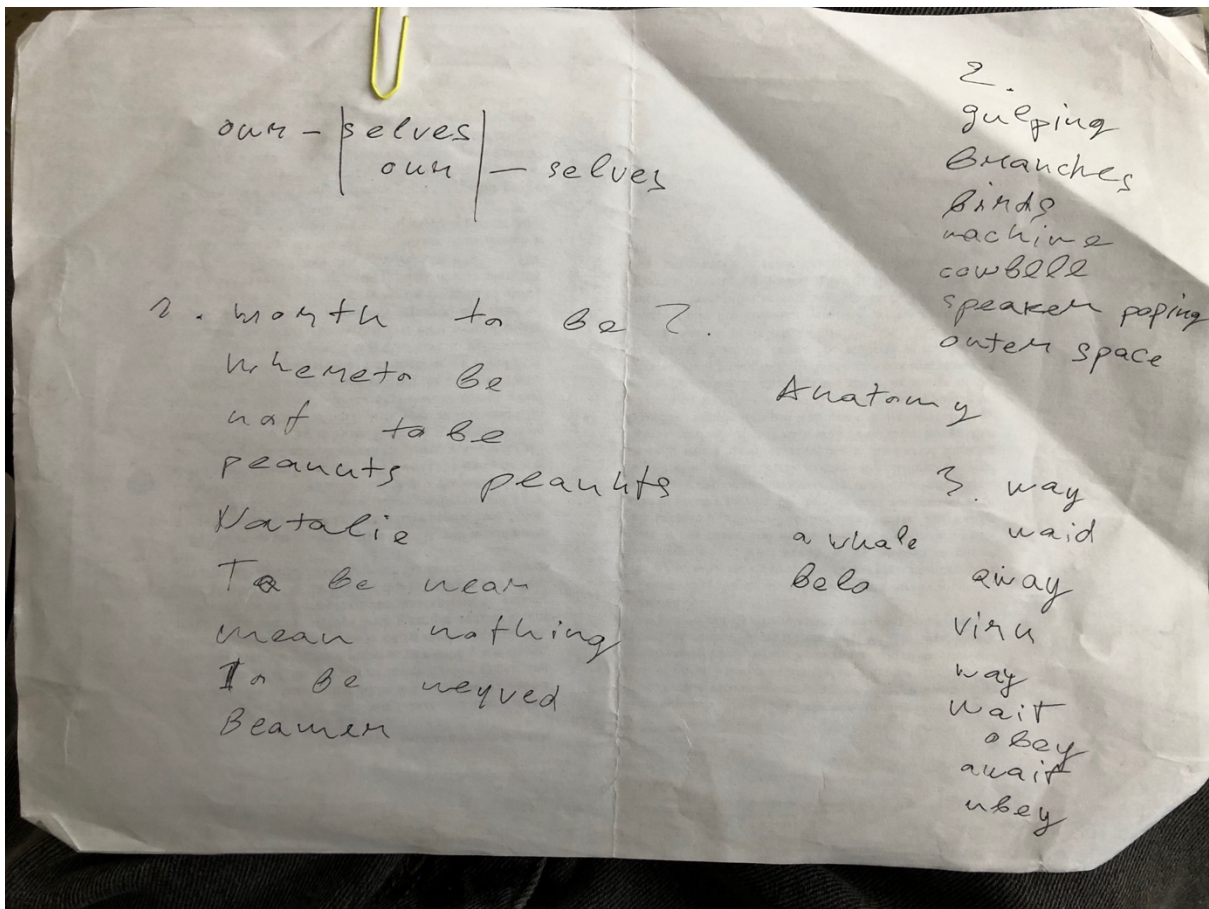 our - | selves |
| our | - selves
1. worth to be ?.
whereto be
not to be
peanuts peanuts
Natalie
To be near
mean nothing
To be weyved
Beamer
2.
gulping
Branches
birds
machine
cowbell
speaker poping
outer space
Anatomy
3. way
waid
away
viru
way
wait
obey
await
ubey
a whale
Belo